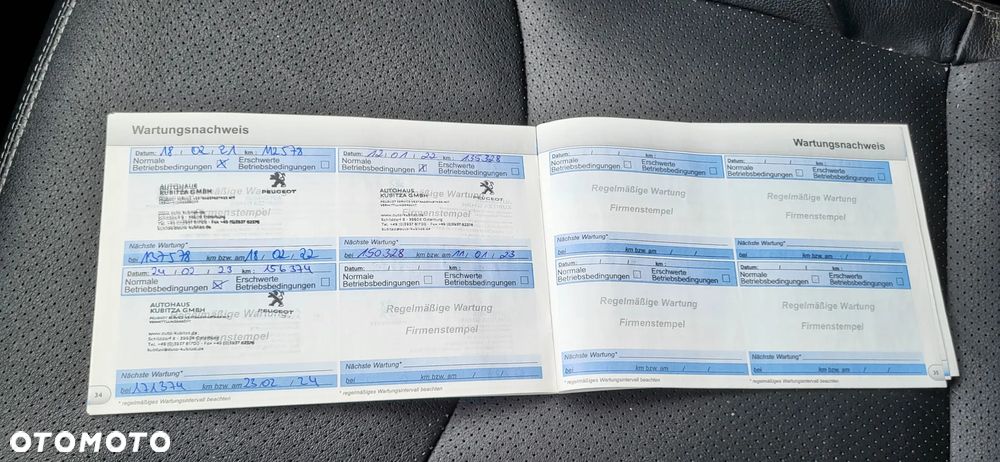 Wartungsnachweis
Datum: 18 , 02 , 21 km: 112578
Normale Betriebsbedingungen X Erschwerte Betriebsbedingungen
Regelmäßige Wartung
AUTOHAUS
KUBITZA GMBH
PEUGEOT
Firmenstempel
Nächste Wartung*
bei 137578 km bzw. am 18 , 02 , 22
Datum: 12 , 01 , 22 km: 135328
Normale Betriebsbedingungen X Erschwerte Betriebsbedingungen
Regelmäßige Wartung
AUTOHAUS
KUBITZA GMBH
PEUGEOT
Firmenstempel
Nächste Wartung*
bei 150328 km bzw. am 11 , 01 , 23
24 , 02 , 23 km: 156374
Normale Betriebsbedingungen X Erschwerte Betriebsbedingungen
Regelmäßige Wartung
AUTOHAUS
KUBITZA GMBH
PEUGEOT
www.auto-kubitza.de
Firmenstempel
Nächste Wartung*
bei 171374 km bzw. am 23 02 , 24
Datum: / / km:
Normale Betriebsbedingungen Erschwerte Betriebsbedingungen
Regelmäßige Wartung
Firmenstempel
Nächste Wartung*
bei km bzw. am / /
34
* regelmäßiges Wartungsintervall beachten
* regelmäßiges Wartungsintervall beachten
Wartungsnachweis
Datum: / / km:
Normale Betriebsbedingungen Erschwerte Betriebsbedingungen
Regelmäßige Wartung
Firmenstempel
Nächste Wartung*
bei km bzw. am / /
Datum: / / km:
Normale Betriebsbedingungen Erschwerte Betriebsbedingungen
Regelmäßige Wartung
Firmenstempel
Nächste Wartung*
bei km bzw. am / /
Datum: / / km:
Normale Betriebsbedingungen Erschwerte Betriebsbedingungen
Regelmäßige Wartung
Firmenstempel
Nächste Wartung*
bei km bzw. am / /
Datum: / / km:
Normale Betriebsbedingungen Erschwerte Betriebsbedingungen
Regelmäßige Wartung
Firmenstempel
Nächste Wartung*
bei km bzw. am / /
35
* regelmäßiges Wartungsintervall beachten
* regelmäßiges Wartungsintervall beachten
OTOMOTO